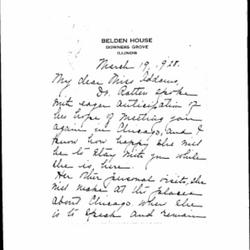 BELDEN HOUSE
DOWNERS GROVE
ILLINOIS
March 19, 1928.
My dear Miss Addams,
Dr. Ratten spoke
with eager anticipation of
her hope of meeting you
again in Chicago, and I
know how happy she will
be to stay with you while
she is here.
Her other personal visits, she
will make at the places
about Chicago where she
is to speak and remain